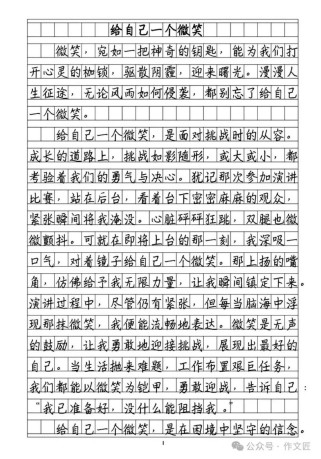 给自己一个微笑
微笑，宛如一把神奇的钥匙，能为我们打
开心灵的枷锁，驱散阴霾，迎来曙光。漫漫人
生征途，无论风雨如何侵袭，都别忘了给自己
一个微笑。
给自己一个微笑，是面对挑战时的从容。
成长的道路上，挑战如影随形，或大或小，都
考验着我们的勇气与决心。犹记那次参加演讲
比赛，站在后台，看着台下密密麻麻的观众，
紧张瞬间将我淹没。心脏呯呯狂跳，双腿也微
微颤抖。可就在即将上台的那一刻，我深吸一
口气，对着镜子给自己一个微笑。那上扬的嘴
角，仿佛给予我无限力量，让我瞬间镇定下来。
演讲过程中，尽管仍有紧张，但每当脑海中浮
现那抹微笑，我便能流畅地表达。微笑是无声
的鼓励，让我勇敢地迎接挑战，展现出最好的
自己。当生活抛来难题，工作布置艰巨任务，
我们都能以微笑为铠甲，勇敢迎战，告诉自己：
“我已准备好，没什么能阻挡我。”
给自己一个微笑，是在困境中坚守的信念。
1
公众号 · 作文匠